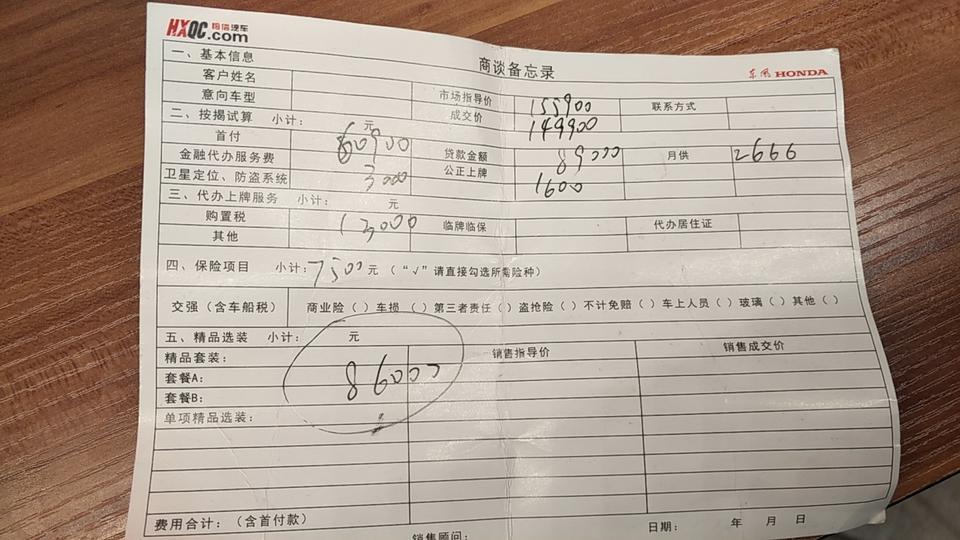 HXQC 恒信汽车
.com
商谈备忘录
东风 HONDA
一、基本信息
客户姓名 市场指导价 155900 联系方式
意向车型 成交价 149900
二、按揭试算 小计： 元
首付 60900 贷款金额 89000 月供 2666
金融代办服务费 3000 公正上牌 1600
卫星定位、防盗系统
三、代办上牌服务 小计： 元
购置税 13000 临牌临保 代办居住证
其他
四、保险项目 小计：7500元（“√”请直接勾选所需险种）
交强（含车船税） 商业险（ ）车损（ ）第三者责任（ ）盗抢险（ ）不计免赔（ ）车上人员（ ）玻璃（ ）其他（ ）
五、精品选装 小计： 元
精品套装： 销售指导价 销售成交价
套餐A： 86000
套餐B：
单项精品选装：
费用合计：（含首付款）
销售顾问： 日期： 年 月 日